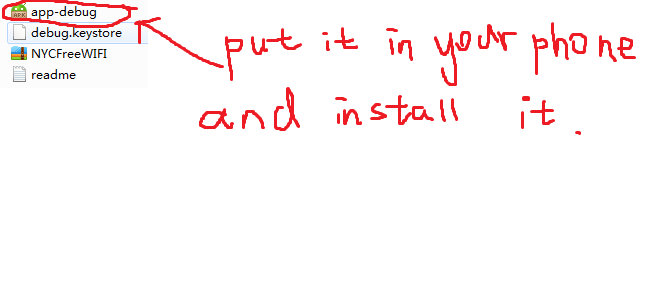 app-debug
debug.keystore
NYCFreeWIFI
readme
put it in your phone
and install it.